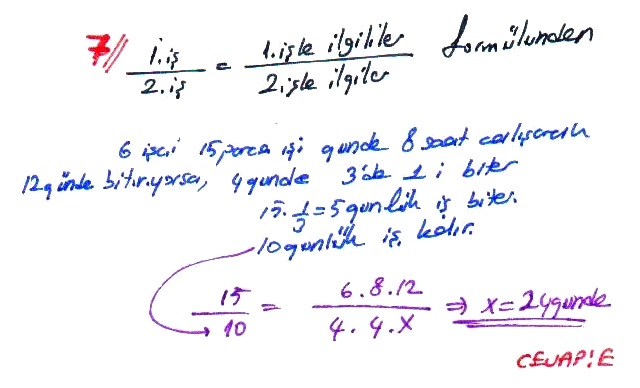 7// 1. iş / 2. iş = 1. işle ilgililer / 2. işle ilgiler formülünden
6 işçi 15 parça işi günde 8 saat çalışarak
12 günde bitiriyorsa, 4 günde 3'de 1 i biter
15 . 1/3 = 5 günlük iş biter.
10 günlük iş kalır.
15 / 10 = 6 . 8 . 12 / 4 . 4 . X ⇒ x = 24 günde
CEVAP: E